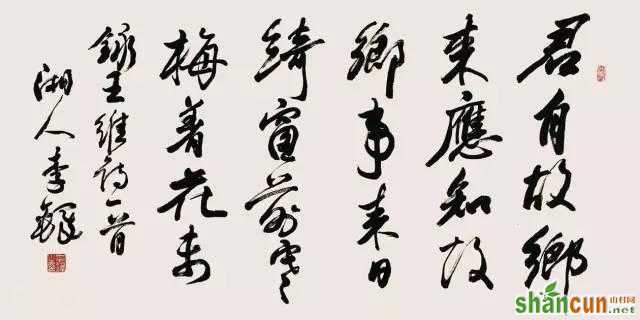 君自故鄉
来應知故
鄉事来日
綺窗前寒
梅着花未
錄王維詩一首
湘人李鐸
shancun
山村网
.net